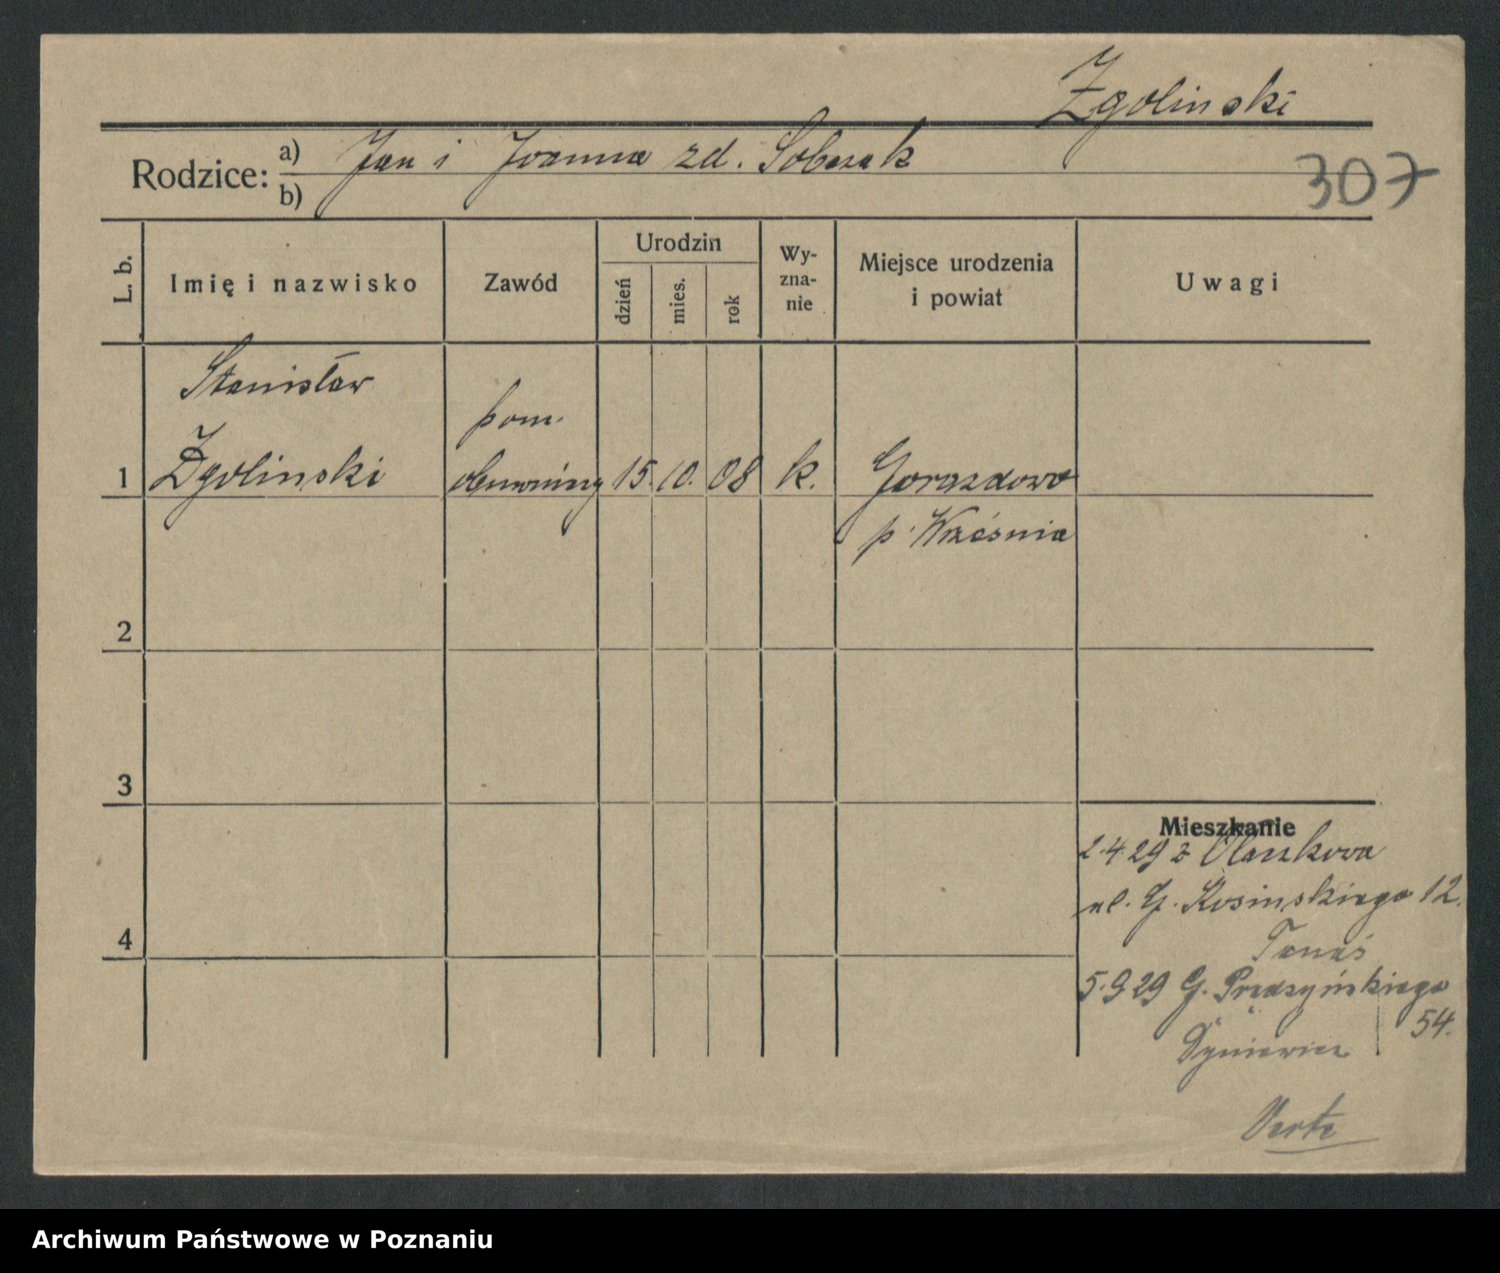 Zgolinski
Rodzice: a) Jan i Joanna zd. Sobczak
b)
307
L. b.
Imię i nazwisko
Zawód
Urodzin
dzień
mies.
rok
Wy-
zna-
nie
Miejsce urodzenia
i powiat
Uwagi
Stanisław
pom.
1 Zgolinski 15. 10. 08 k. Gorazdowo
p. Września
2
3
Mieszkanie
2.4.29 z
ul. G. Kosinskiego 12.
4
Tomaś
5.9.29 G. Prądzyńskiego
54.
Dyniewicz
Verte
Archiwum Państwowe w Poznaniu